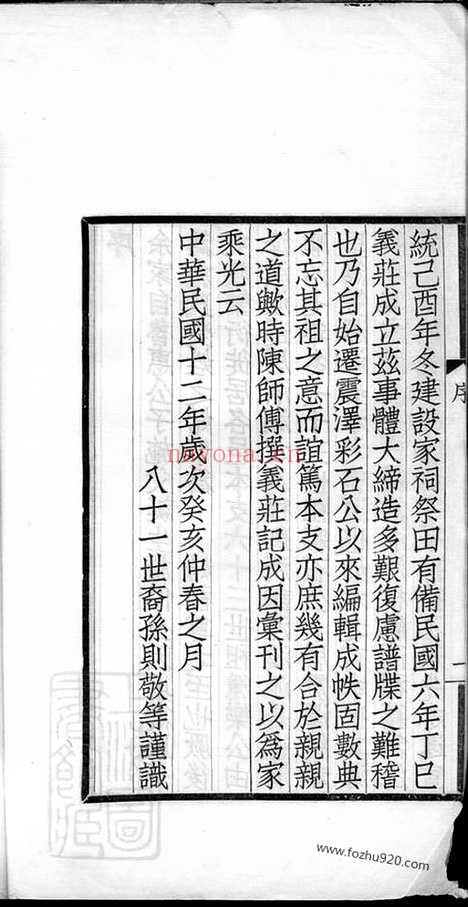 統己酉年冬建設家祠祭田有備民國六年丁巳
義莊成立茲事體大締造多艱復慮譜牒之難稽
也乃自始遷震澤彩石公以來編輯成帙固數典
不忘其祖之意而誼篤本支亦庶幾有合於親親
之道歟時陳師傅撰義莊記成因彙刊之以爲家
乘光云
中華民國十二年歲次癸亥仲春之月
八十一世裔孫則敬等謹識
序
一
nayona.cn
www.fozhu920.com